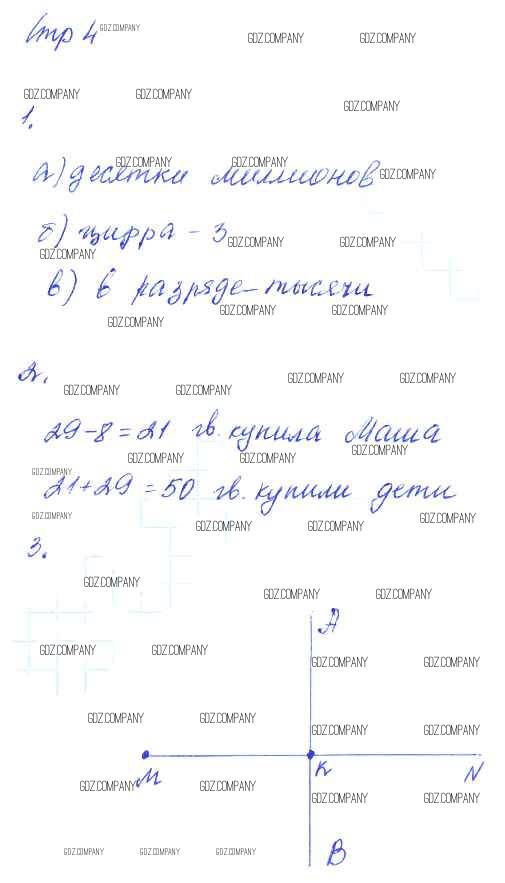 Стр 4
1.
а) десятки миллионов
б) цифра - 3
в) в разряде - тысячи
2.
29-8=21 гв. купила Маша
21+29=50 гв. купили дети
3.
A
M K N
B
GDZ.COMPANY